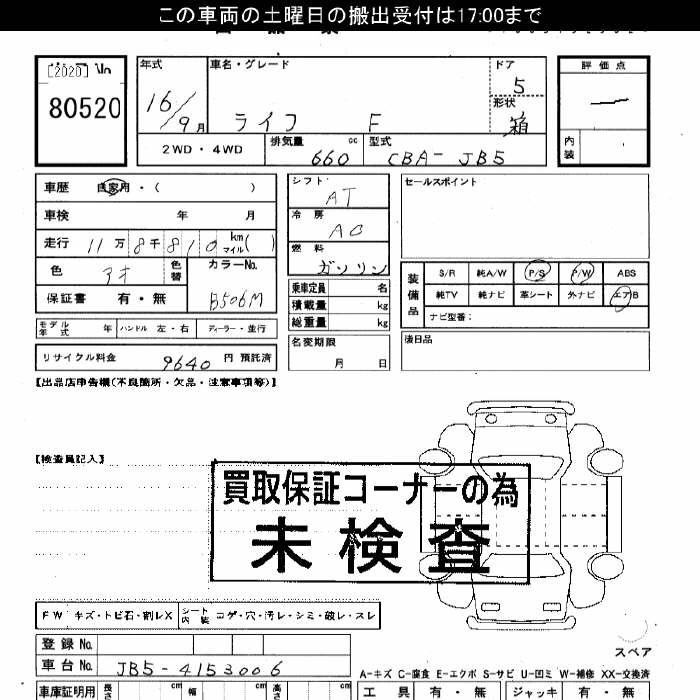 この車両の土曜日の搬出受付は17:00まで
[2020] No
80520
年式
16/9月
車名・グレード
ライフ F
ドア
5
形状
箱
評価点
内装
2WD・4WD
排気量
660 cc
型式
CBA-JB5
車歴 自家用・( )
車検 年 月
走行 11万8千810 km マイル( )
色 アオ 色替
カラーNo.
B506M
保証書 有・無
モデル年式 年 ハンドル 左・右 ディーラー・並行
リサイクル料金 9640 円 預託済
シフト
AT
冷房
AC
燃料
ガソリン
乗車定員 名
積載量 kg
総重量 kg
名変期限
月 日
セールスポイント
装備品
S/R 純A/W P/S P/W ABS
純TV 純ナビ 革シート 外ナビ エアB
ナビ型番:
後日品
【出品店申告欄(不良箇所・欠品・注意事項等)】
【検査員記入】
買取保証コーナーの為
未検査
FW キズ・トビ石・割レX
シート内装 コゲ・穴・汚レ・シミ・破レ・スレ
登録No.
車台No. JB5-4153006
スペア
A-キズ C-腐食 E-エクボ S-サビ U-凹ミ W-補修 XX-交換済
車庫証明用 長さ cm 幅 cm 高さ cm
工具 有・無 ジャッキ 有・無